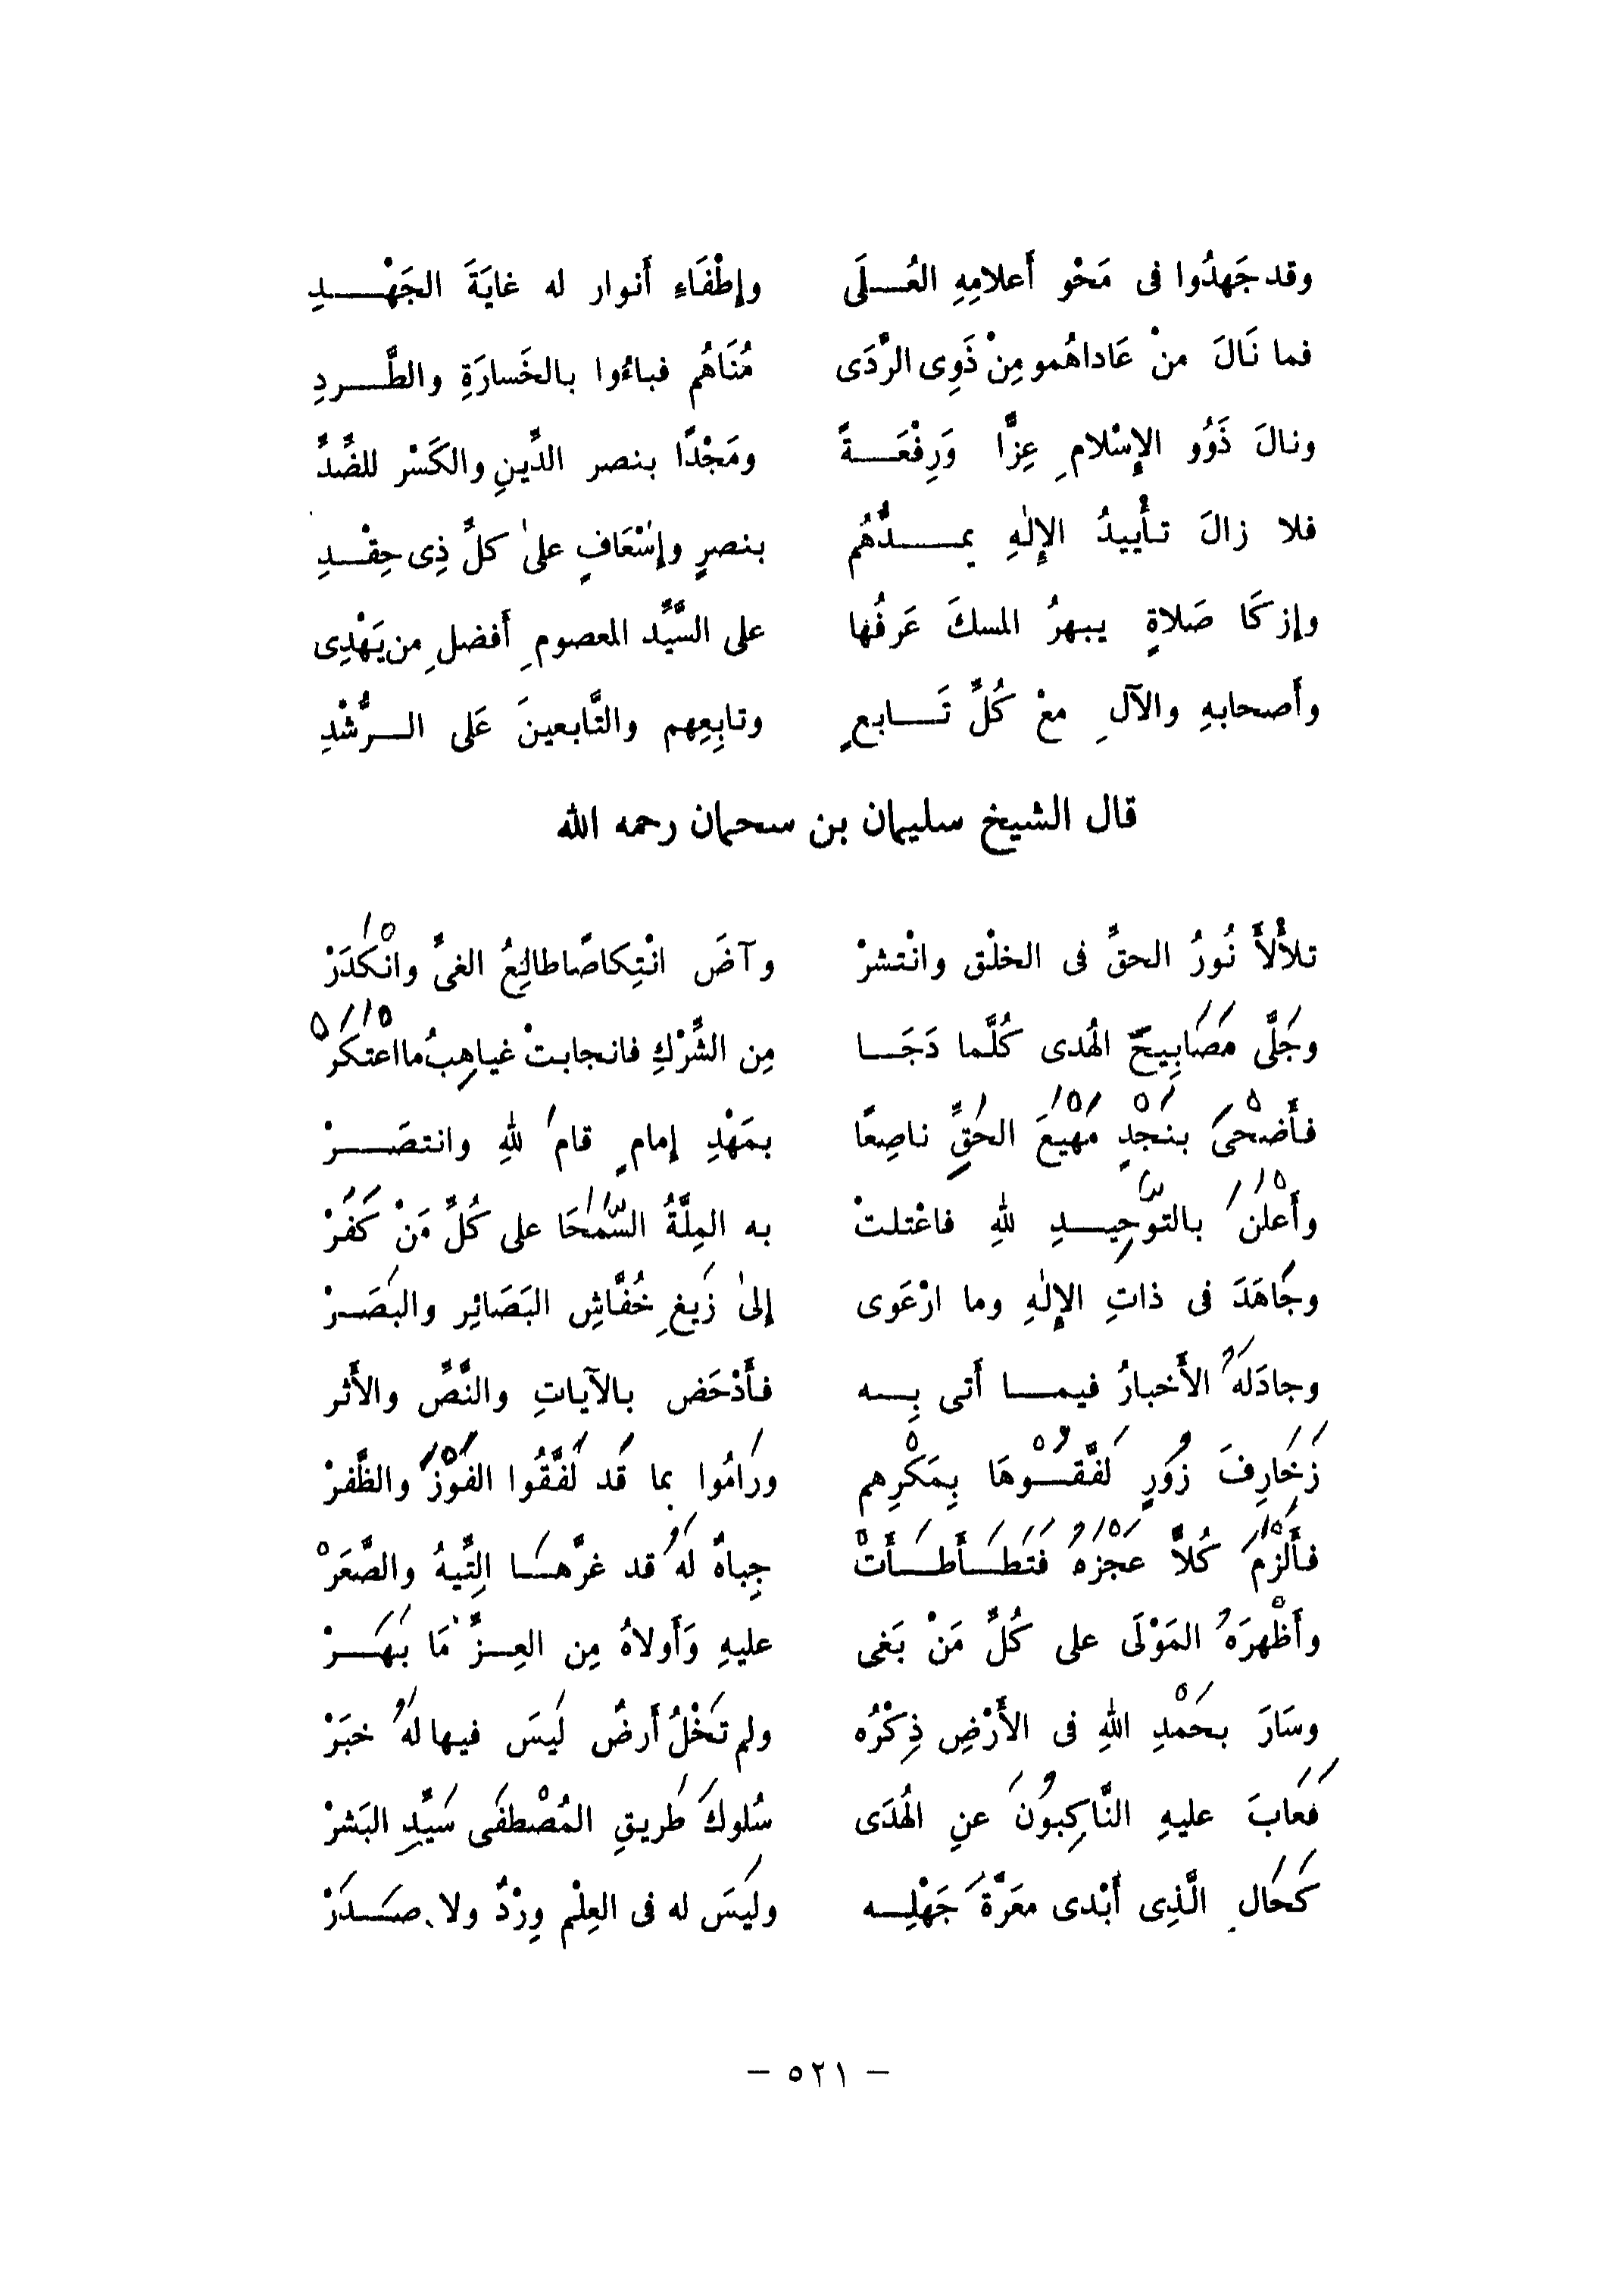 وقد جَهدُوا فى مَحْو أَعلامِهِ العُلَى وإطْفَاءِ أَنوار له غايَةَ الجَهْدِ
فما نَالَ منْ عَاداهُمو مِنْ ذَوِى الرَّدَى مُنَاهُم فباءُوا بالخَسارَةِ والطَّردِ
ونالَ ذَوُو الإِسْلامِ عِزًّا وَرِفْعَةً ومَجْدًا بنصر الدِّينِ والكَسْر للضِّدِّ
فلا زالَ تأْييدُ الإِلٰهِ يمدُّهُم بنصرٍ وإِسْعَافٍ علىٰ كلِّ ذِى حِقْدِ
وإزكَا صَلاةٍ يبهرُ المسكَ عَرفُها على السَّيِّد المعصومِ أَفضلِ من يَهْدِى
وأَصحابهِ والآلِ معْ كُلِّ تَابعٍ وتابِعِهم والتَّابعينَ عَلى الرُّشْدِ
قال الشيخ سليمان بن سحمان رحمه الله
تلأْلأَ نُورُ الحقِّ فى الخلْق وانْتشرْ وآضَ انْتِكاصًا طالِعُ الغىِّ وانْكَدَرْ
وجَلَّى مَصَابِيحَ الهُدى كُلَّما دَجَا مِن الشِّرْكِ فانجابتْ غياهِبُ ما اعتكَرْ
فأَضْحىَ بنَجْدٍ مَهْيَعَ الحَقِّ ناصِعًا بمَهْدِ إمامٍ قامَ للهِ وانتصَرْ
وأَعْلنَ بالتوّحِيدِ للهِ فاعْتلتْ به المِلَّةُ السَّمْحَا على كُلِّ مَنْ كَفَرْ
وجَاهَدَ فى ذاتِ الإِلٰهِ وما ارْعَوى إلىٰ زَيغِ خُفَّاشِ البَصَائِر والبصَرْ
وجادَلَهُ الأَخبارُ فيما أَتى بِه فأَدْحَض بالآياتِ والنَّصِّ والأَثر
زَخَارِفَ زُورٍ لَفَّقُوْهَا بِمَكْرِهم ورَامُوا بما قَد لَفَّقُوا الفَوْزَ والظَّفرْ
فأَلْزَمَ كُلاًّ عَجْزَهُ فَتَطَأْطَأَتْ جِباهٌ لَهُ قد غرَّهَا التِّيهُ والصَّعَرْ
وأَظْهرَهُ المَوْلَى على كُلِّ مَنْ بَغى عليهِ وَأَولاهُ مِن العِزِّ مَا بَهَرْ
وسَارَ بحَمْدِ اللهِ فى الأَرْضِ ذِكْرُه ولم تَخْلُ أَرضٌ لَيسَ فيها لهُ خبَرْ
فَعَابَ عليهِ النَّاكِبُونَ عنِ الهُدَى سُلوكَ طَريقِ المُصْطفَى سَيِّدِ البَشرْ
كَحَالِ الَّذِى أَبْدى معَرَّةَ جَهْلِه ولَيسَ له فى العِلْم وِرْدٌ ولا صَدَرْ
– ٥٢١ –